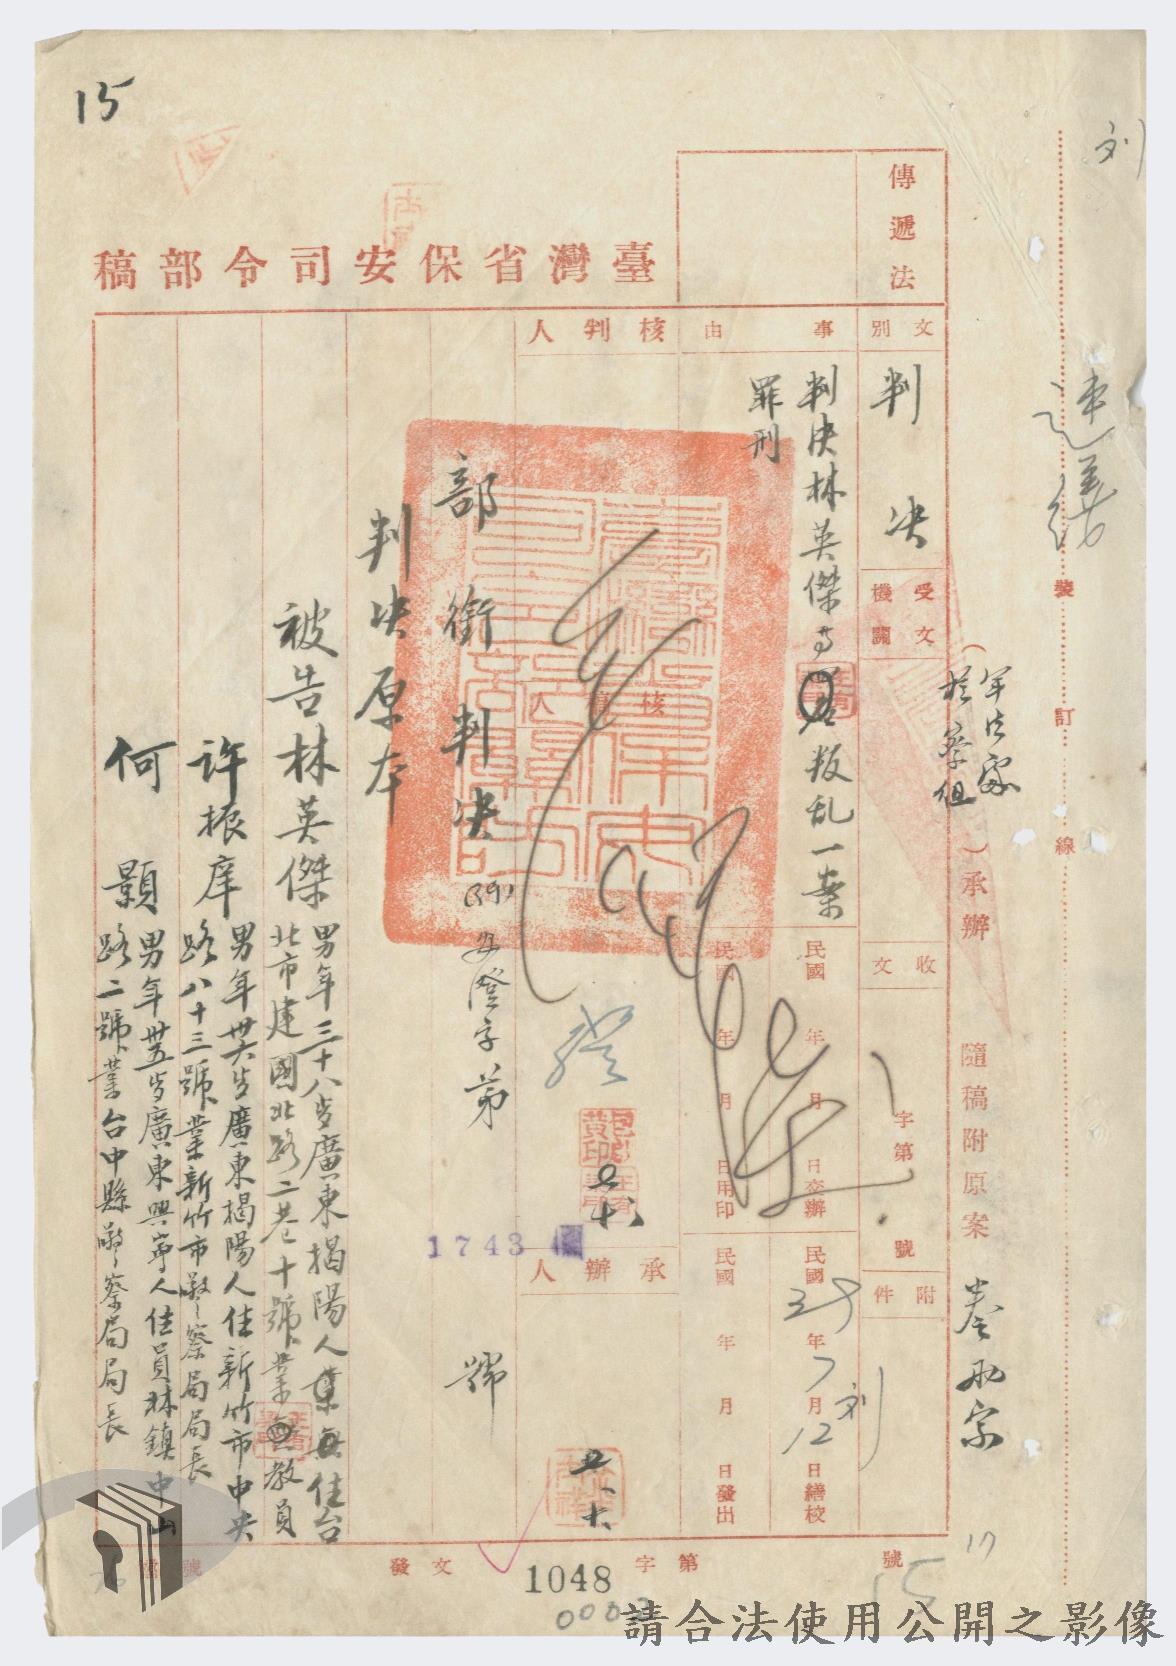 15
刘
速
裝
訂
線
(軍法處
審組)承辦
隨稿附原案
卷两宗
傳遞法
臺灣省保安司令部稿
文別
判決
受文機關
收文
字第
號
附件
事由
判決林英傑等叛乱一案
罪刑
民國
年
月
日交辦
民國39年7月12日繕校
刘
民國
年
月
日用印
民國
年
月
日發出
核判人
核
人
承辦人
17434
部銜判決
(39)安澄字第
號
判決原本
被告林英傑
男年三十八岁廣東揭陽人住台
北市建國北路二巷十號業教員
許振庠
男年卅六岁廣東揭陽人住新竹市中央
路八十三號業新竹市警察局局長
何顯
男年卅五岁廣東興寧人住員林鎮中山
路二號業台中縣警察局局長
發文
字第
號
1048
15
17
檔號
請合法使用公開之影像